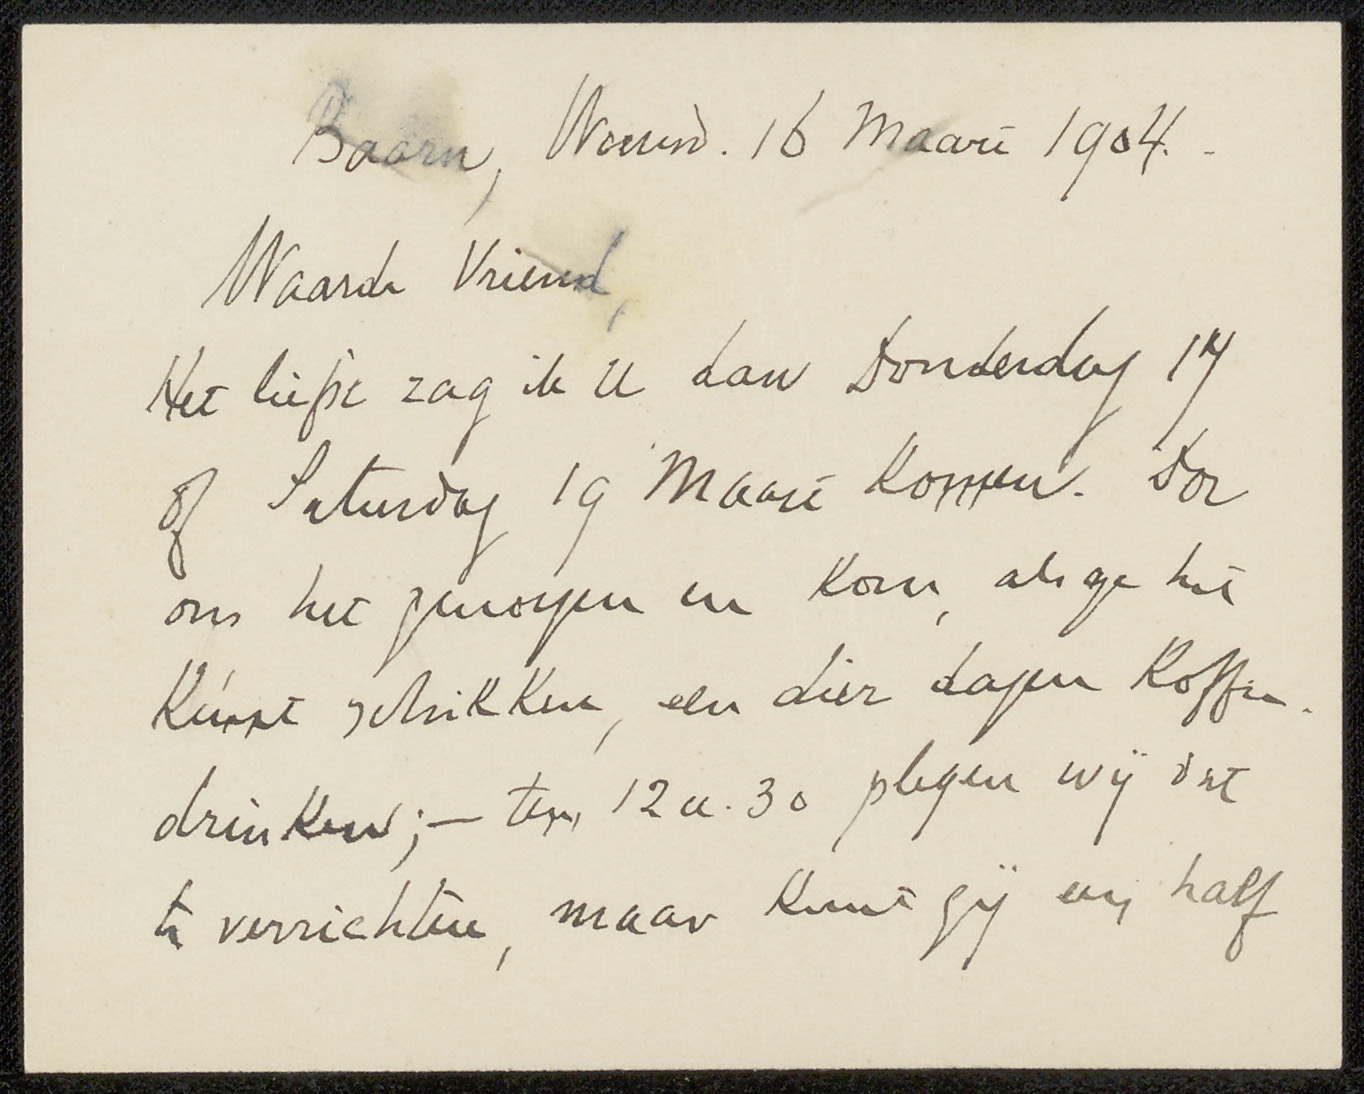 Baarn, Woensd. 16 Maart 1904.
Waarde Vriend,
Het liefst zag ik U dan Donderdag 17
of Saturdag 19 Maart komen. Doe
ons het genoegen en kom, als ge het
kúnt schikken, een dier dagen koffie-
drinken; — ten 12 u. 30 plegen wij dat
te verrichten, maar kunt gij eerst half